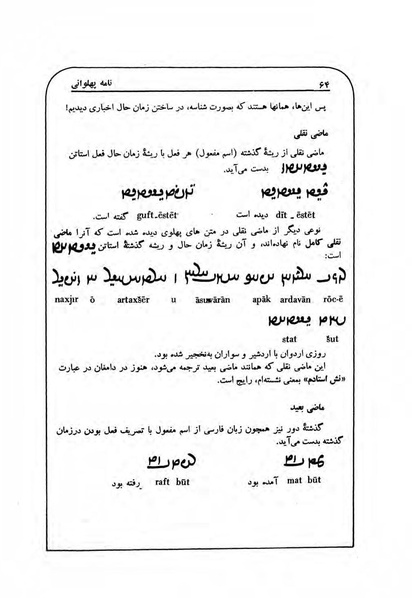 ۶۴ نامه پهلوانی
پس این‌ها، همانها هستند که بصورت شناسه، در ساختن زمان حال اخباری دیدیم!
ماضی نقلی
ماضی نقلی از ریشهٔ گذشته (اسم مفعول) هر فعل با ریشهٔ زمان حال فعل استاتن
بدست می‌آید.
dīt _ ēstēt دیده است guft_ēstēt گفته است.
نوعی دیگر از ماضی نقلی در متن های پهلوی دیده شده است که آنرا ماضی
نقلی کامل نام نهاده‌اند، و آن ریشهٔ زمان حال و ریشه گذشتهٔ استاتن
است:
naxjīr ō artaxšēr u āsuwārān apāk ardavān rōc-ē
stat šut
روزی اردوان با اردشیر و سواران به‌نخجیر شده بود.
این ماضی نقلی که همانند ماضی بعید ترجمه می‌شود، هنوز در دامغان در عبارت
«نش استادم» بمعنی نشسته‌ام، رایج است.
ماضی بعید
گذشتهٔ دور نیز همچون زبان فارسی از اسم مفعول با تصریف فعل بودن درزمان
گذشته بدست می‌آید.
mat būt آمده بود raft būt رفته بود